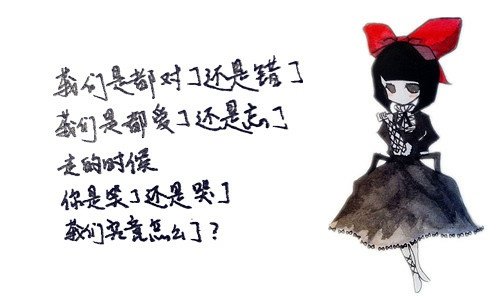 我们是都对了还是错了
我们是都爱了还是忘了
走的时候
你是笑了还是哭了
我们究竟怎么了?